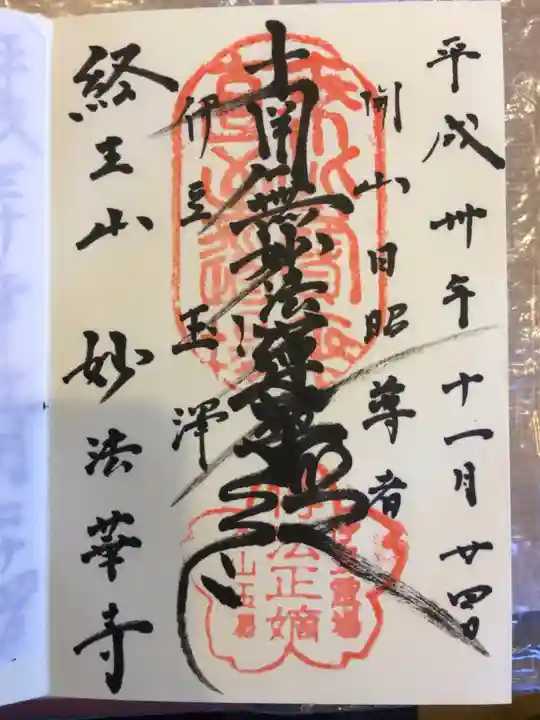 平成卅年十一月廿四日
開山日昭尊者
南無妙法蓮華経
伊豆玉澤
経王山 妙法華寺
正嫡